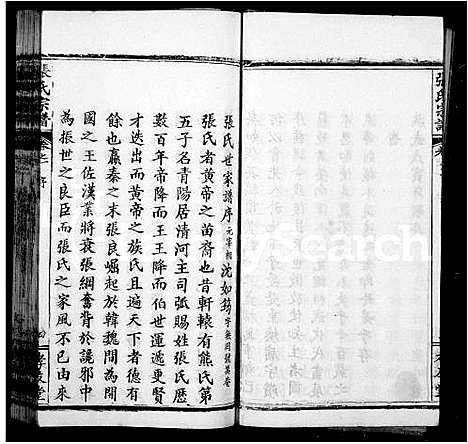 張氏宗譜
張氏世家譜序 元宰相 沈如錫
張氏者黃帝之苗裔也昔軒轅有熊氏第
五子名青陽居清河主司弧賜姓張氏歷
數百年帝降而王王降而伯世運遞更賢
才迭出而黃帝之族氏且遍天下者德有
餘也嬴秦之末張良崛起於韓魏間為開
國之王佐漢業將衰張綱奮背於讒邪中
為振世之良臣而張氏之家風不已由來
張氏宗譜
卷之
序
四
孝友堂